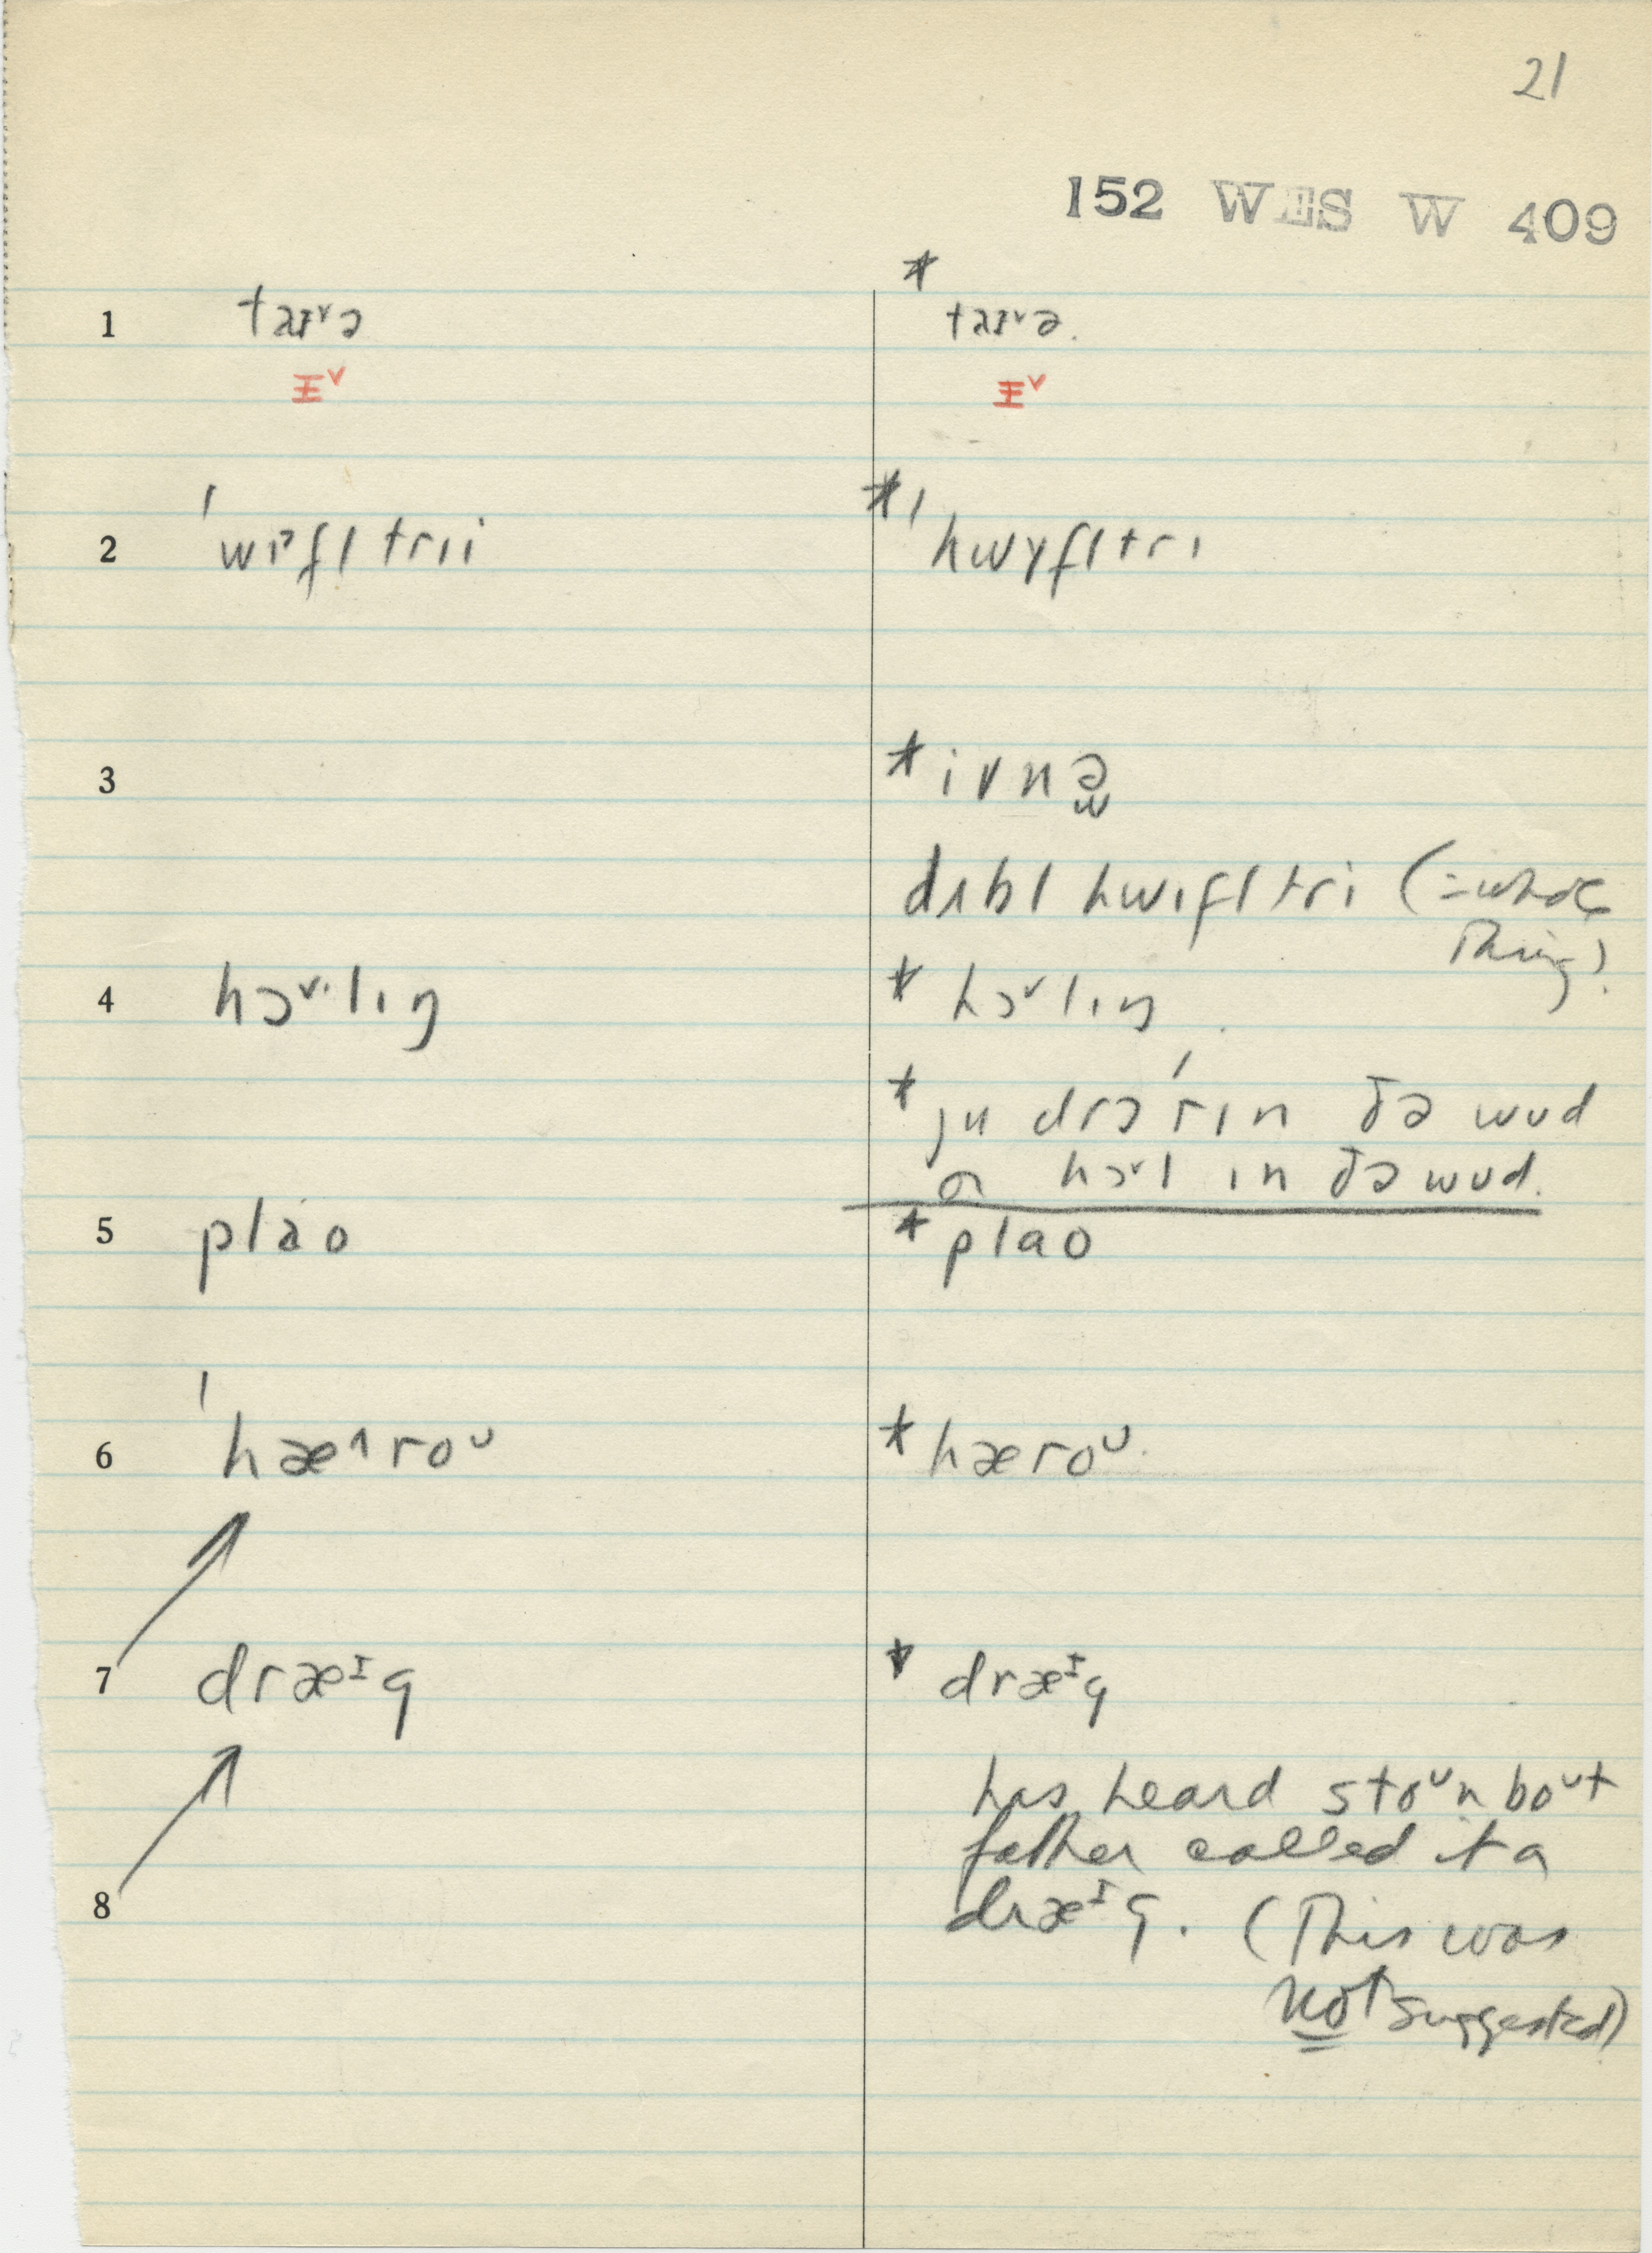 21
152 WES W 409
1 taɪᵛə * taɪᵛə.
ɪᵛ ɪᵛ
2 ˈwɪˀfl trii *ˈhwɤfltri
3 * ivnə̫
dʌbl hwɪfl tri (=whole
thing)
4 hɔᵛ·lɪŋ * hɔᵛlɪŋ
* ju drɔ́rɪn ðə wud
or hɔᵛl ɪn ðə wud.
5 plao * plao
6 ˈhæ^roᶷ * hæroᶷ
7 dræᶦg * dræᶦg
has heard stoᶷnboᶷt
father called it a
8 dræᶦg. (This was
not suggested)